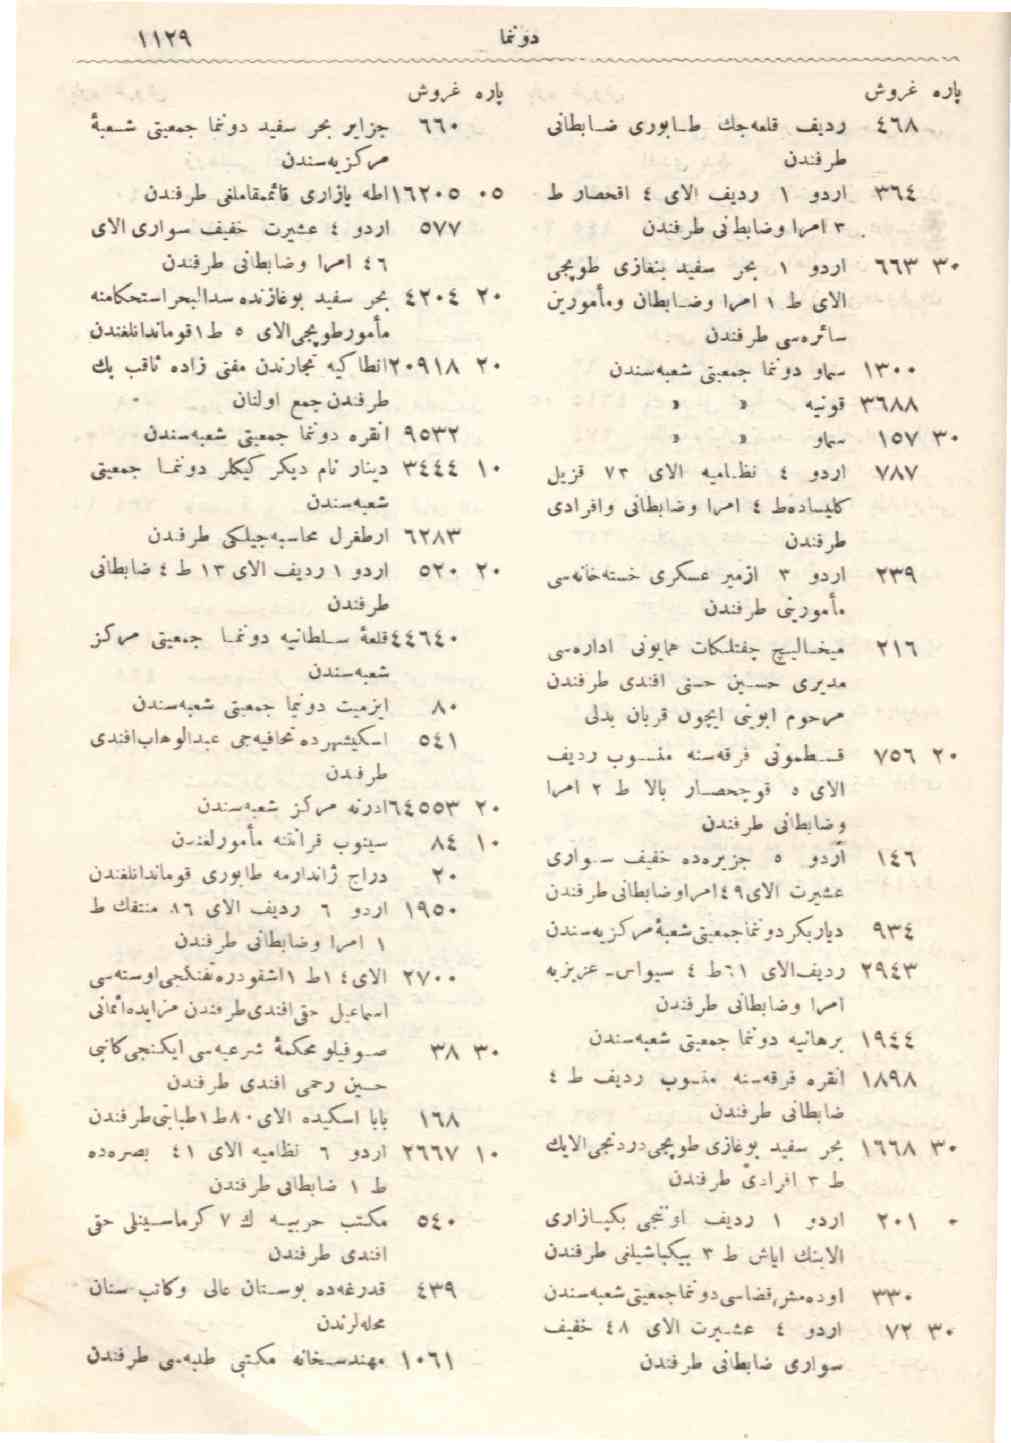 دونما ١١٢٩
پاره غروش
٤٦٨ رديف قلعه‌جك طـابوری ضـابطانی
طرفندن
٣٦٤ اردو ١ رديف الای ٤ اقحصار ط
٣ امرا وضابطانی طرفندن
٣٠ ٦٦٣ اردو ١ بحر سفيد بنغازی طوپجی
الای ط ١ امرا وضـابطان ومأمورين
سائره‌سی طرفندن
١٣٠٠ سماو دونما جمعيتی شعبه‌سندن
٣٦٨٨ قونيه » »
٣٠ ١٥٧ سماو » »
٧٨٧ اردو ٤ نظـاميه الای ٧٣ قزيل
كليساده‌ط ٤ امرا وضابطانی وافرادی
طرفندن
٢٣٩ اردو ٣ ازمير عسكری خسته‌خانه‌سی
مأمورينی طرفندن
٢١٦ ميخـاليـچ چفتلكات همايونی اداره‌سی
مديری حسـين حسنی افندی طرفندن
مرحوم ابوينی ايچون قربان بدلی
٢٠ ٧٥٦ قـسطمونی فرقه‌سنه منسـوب رديف
الای ٥ قوجحصـار بالا ط ٢ امرا
وضابطانی طرفندن
١٤٦ اردو ٥ جزيره‌ده خفيف سـواری
عشيرت الای ٤٩ امرا وضابطانی طرفندن
٩٣٤ دياربكر دونما جمعيتی شعبهٔ مركزيه‌سندن
٢٩٤٣ رديف الای ٦١ ط ٤ سيواس ـ عزيزيه
امرا وضابطانی طرفندن
١٩٤٤ برهانيه دونما جمعيتی شعبه‌سندن
١٨٩٨ انقره فرقه‌سنه منسوب رديف ط ٤
ضابطانی طرفندن
٣٠ ١٦٦٨ بحر سفيد بوغازی طوپجی دردنجی الايك
ط ٣ افرادی طرفندن
٠ ٢٠١ اردو ١ رديف اوننجی بكبـازاری
الاينك اياش ط ٣ بيكباشيلغی طرفندن
٣٣٠ اوده‌مش قضاسی دونما جمعيتی شعبه‌سندن
٣٠ ٧٢ اردو ٤ عشـيرت الای ٤٨ خفيف
سواری ضابطانی طرفندن
پاره غروش
٦٦٠ جزاير بحر سفيد دونما جمعيتی شـعبهٔ
مركزيه‌سندن
٠٥ ١٦٢٠٥ اطه پازاری قائممقاملغی طرفندن
٥٧٧ اردو ٤ عشيرت خفيف سواری الای
٤٦ امرا وضابطانی طرفندن
٢٠ ٤٢٠٤ بحر سفيد بوغازنده سدالبحر استحكامنه
مأمور طوپجی الای ٥ ط ١ قوماندانلغندن
٢٠ ٢٠٩١٨ انطاكيه تجارندن مفتی زاده ثاقب بك
طرفندن جمع اولنان
٩٥٣٢ انقره دونما جمعيتی شعبه‌سندن
١٠ ٣٤٤٤ دينار نام ديكر كيكلر دونمـا جمعيتی
شعبه‌سندن
٦٢٨٣ ارطغرل محاسبه‌جيلكی طرفندن
٢٠ ٥٢٠ اردو ١ رديف الای ١٣ ط ٤ ضابطانی
طرفندن
٤٤٦٤٠ قلعهٔ سـلطانيه دونمـا جمعيتی مركز
شعبه‌سندن
٨٠ ازميت دونما جمعيتی شعبه‌سندن
٥٤١ اسكيشهرده تحافيه‌جی عبدالوهاب افندی
طرفندن
٢٠ ٦٤٥٥٣ ادرنه مركز شعبه‌سندن
١٠ ٨٤ سينوب قرانتنه مأمورلغندن
٢٠ دراج ژاندارمه طابوری قوماندانلغندن
١٩٥٠ اردو ٦ رديف الای ٨٦ منتفك ط
١ امرا وضابطانی طرفندن
٢٧٠٠ الای ١٤ ط ١ اشقودره تفنكجی اوسته‌سی
اسماعيل حقی افندی طرفندن مزايده اثمانی
٣٠ ٣٨ صـوفيلو محكمهٔ شرعيه‌سی ايكنجی كاتبی
حسين رحمی افندی طرفندن
١٦٨ بابا اسكيده الای ٨٠ ط ١ طبابتی طرفندن
١٠ ٢٦٦٧ اردو ٦ نظاميه الای ٤١ بصره‌ده
ط ١ ضابطانی طرفندن
٥٤٠ مكتب حربيـه ك ٧ كرماسـتينلی حقی
افندی طرفندن
٤٣٩ قدرغه‌ده بوسـتان عالی وكاتب سنان
محله‌لرندن
١٠٦١ مهندسـخانه مكتبی طلبه‌سی طرفندن